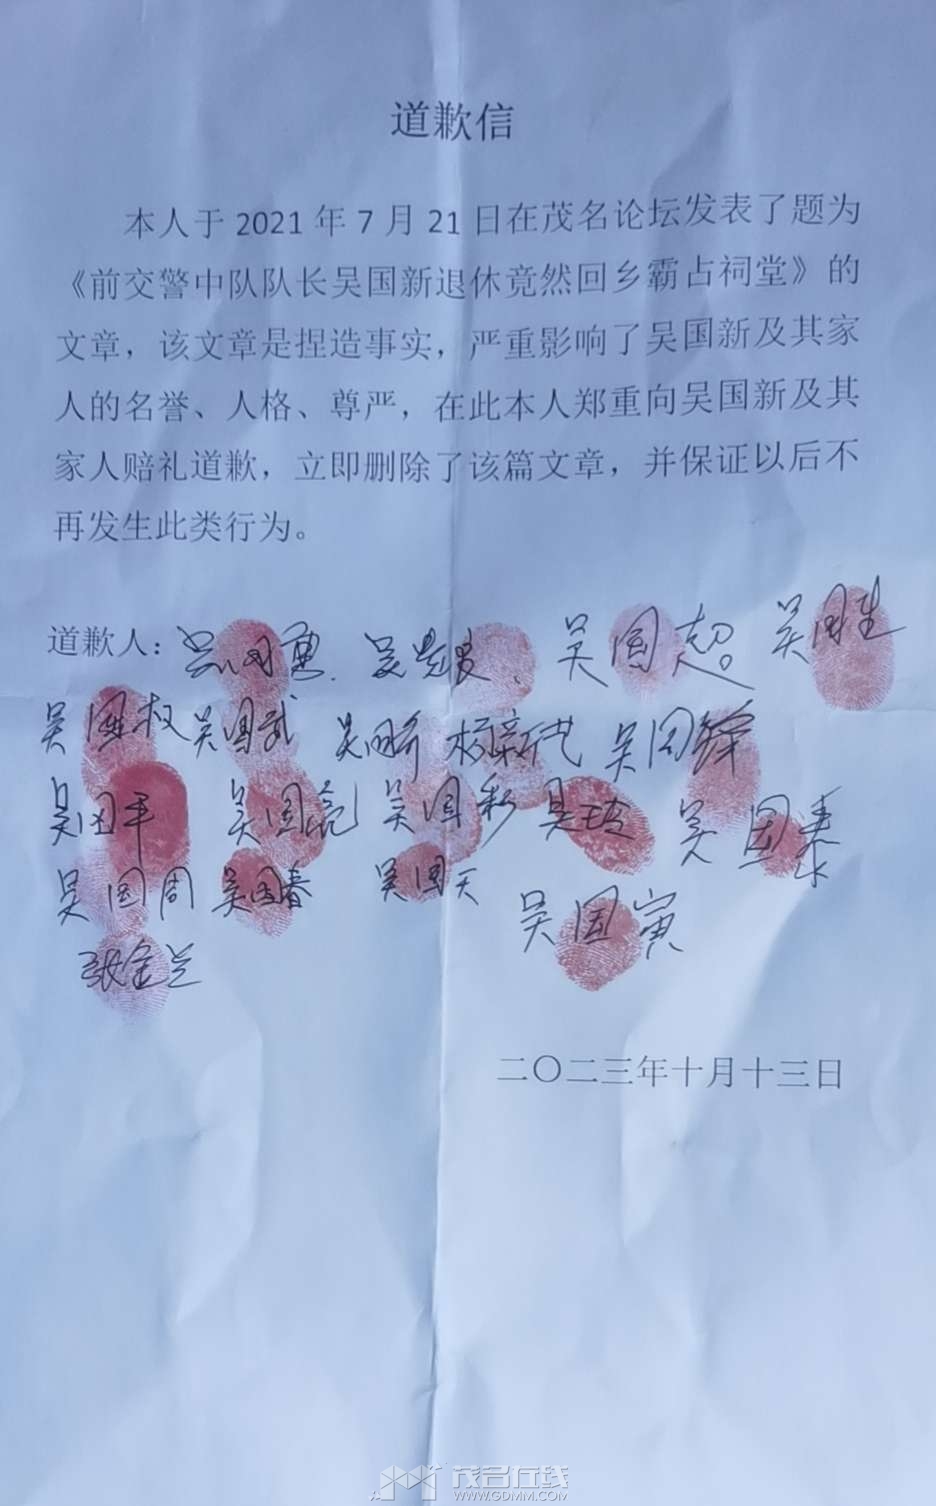 道歉信
本人于 2021 年 7 月 21 日在茂名论坛发表了题为
《前交警中队队长吴国新退休竟然回乡霸占祠堂》的
文章，该文章是捏造事实，严重影响了吴国新及其家
人的名誉、人格、尊严，在此本人郑重向吴国新及其
家人赔礼道歉，立即删除了该篇文章，并保证以后不
再发生此类行为。
道歉人：吴国 吴 吴国超。吴国生
吴国权 吴国武 吴国 杨 吴国锋
吴国平 吴国亮 吴国彩 吴玻 吴国泰
吴国周 吴国春 吴国天
吴国寅
张金兰
二〇二三年十月十三日
茂名在线
WWW.GDMM.COM